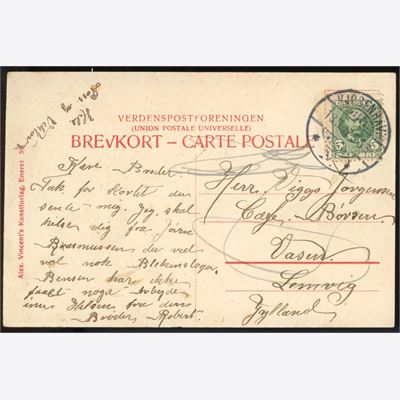 Hils
Fars og
VERDENSPOSTFORENINGEN
(UNION POSTALE UNIVERSELLE)
BREVKORT – CARTE POSTALE
Alex. Vincent's Kunstforlag, Eneret
KJØBENHAVN
5 5
Kære Broder
Tak for Kortet du
sente mig. Jeg skal
hilse dig fra Jørn
Rasmussen du ved
vel nok
Bensen har ikke
faaet noget Arbejde
Hilsen fra din
Broder Robert.
Herr. Viggo Jørgensen
Børsen
Lemvig
Jylland